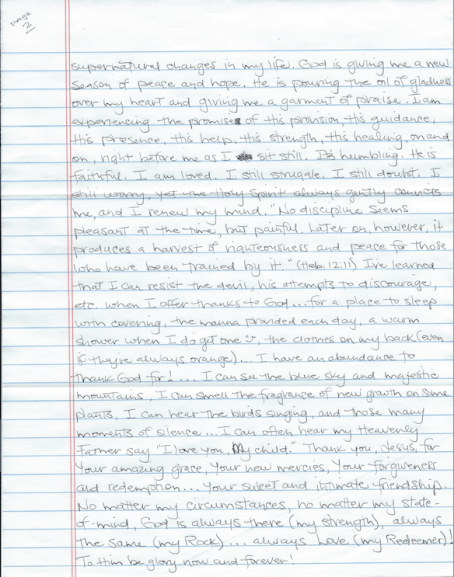 page
2
supernatural changes in my life. God is giving me a new
season of peace and hope. He is pouring the oil of gladness
over my heart and giving me a garment of praise. I am
experiencing the promises of His provision, His guidance,
His presence, His help, His strength, His healing, on and
on, right before me as I sit still. It's humbling. He is
faithful. I am loved. I still struggle. I still doubt. I
still worry, yet the Holy Spirit always gently convicts
me, and I renew my mind. "No discipline seems
pleasant at the time, but painful. Later on, however, it
produces a harvest of righteousness and peace for those
who have been trained by it." (Heb. 12:11) I've learned
that I can resist the devil, his attempts to discourage,
etc. when I offer thanks to God... for a place to sleep
with covering, the manna provided each day, a warm
shower when I do get one :), the clothes on my back (even
if they're always orange)... I have an abundance to
thank God for! ... I can see the blue sky and majestic
mountains, I can smell the fragrance of new growth on some
plants, I can hear the birds singing, and those many
moments of silence... I can often hear my Heavenly
Father say "I love you, My child." Thank you, Jesus, for
Your amazing grace, Your new mercies, Your forgiveness
and redemption... Your sweet and intimate friendship.
No matter my circumstances, no matter my state-
of-mind, God is always there (my strength), always
the same (my Rock)... always Love (my Redeemer)!
To Him be glory now and forever!